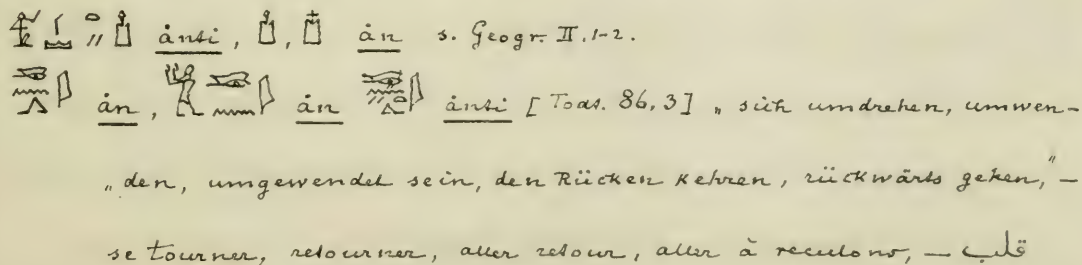 ȧnti, ȧn s. Geogr. II. 1-2.
ȧn, ȧn ȧnti [Todt. 86, 3] „sich umdrehen, umwen-
„den, umgewendet sein, den Rücken kehren, rückwärts gehen,“ –
se tourner, retourner, aller retour, aller à reculons, – قلب